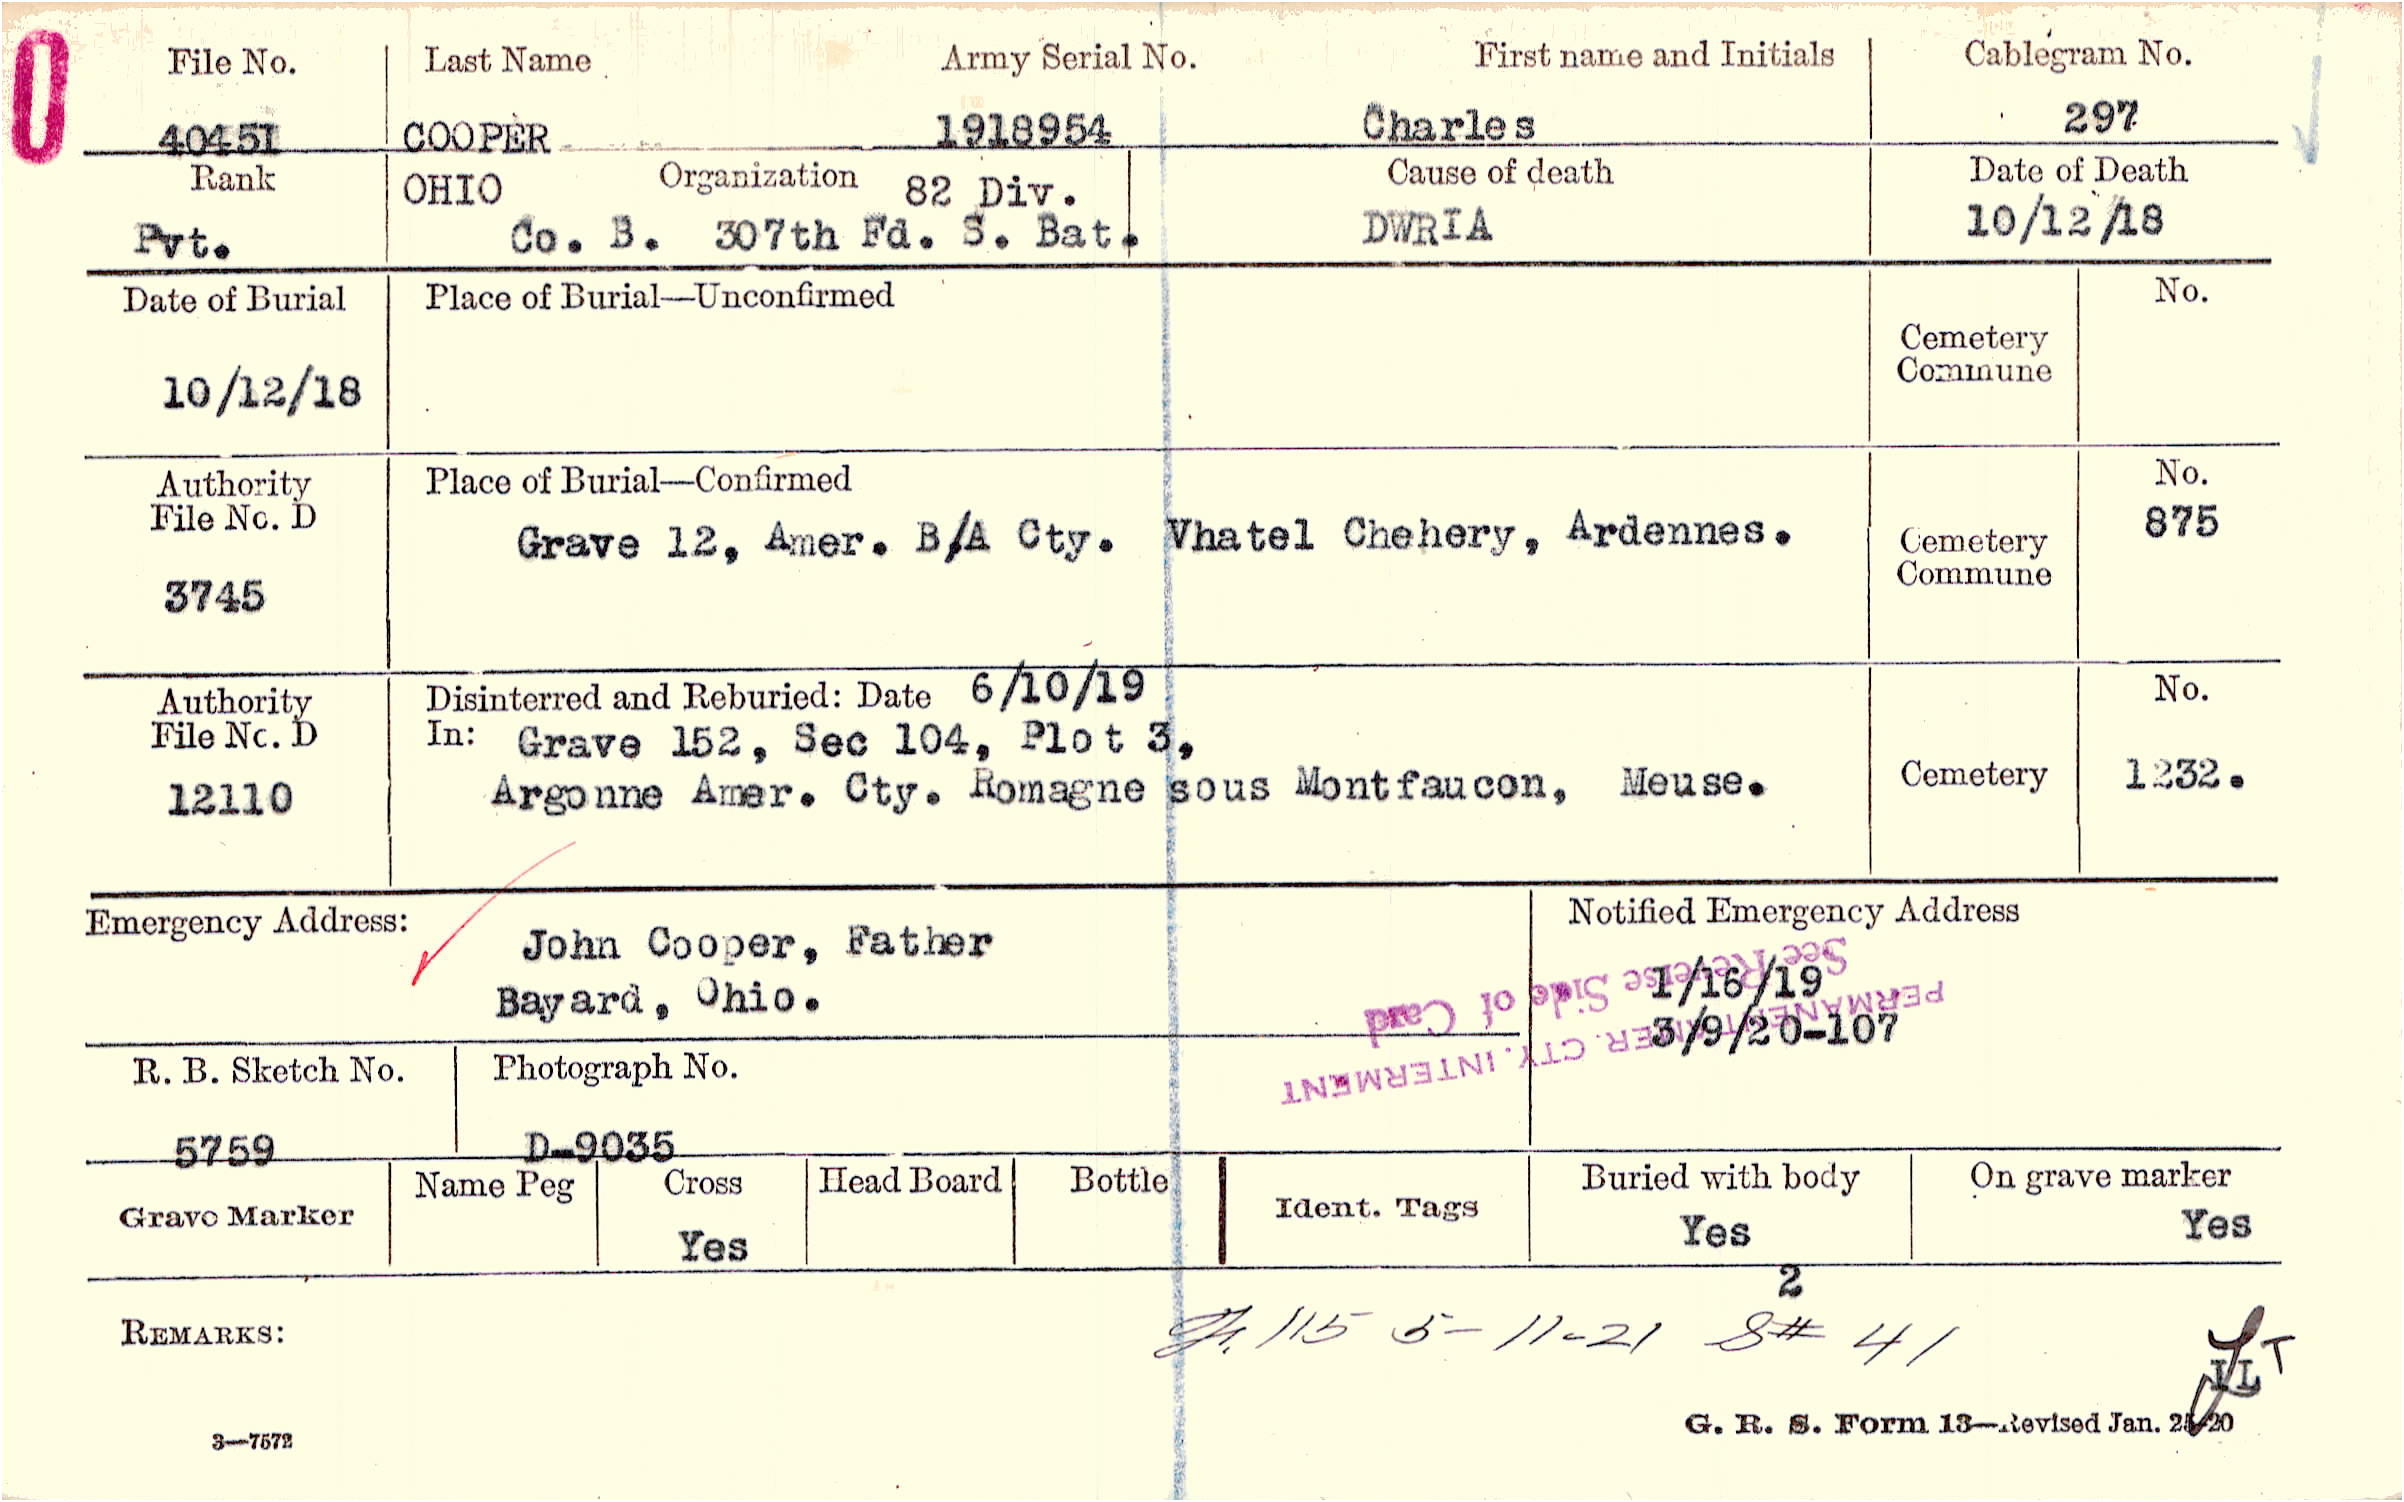 File No. Last Name Army Serial No. First name and Initials Cablegram No.
40451 COOPER 1918954 Charles 297
Rank OHIO Organization 82 Div. Cause of death Date of Death
Pvt. Co. B. 307th Fd. S. Bat. DWRIA 10/12/18
Date of Burial Place of Burial—Unconfirmed No.
Cemetery
Commune
10/12/18
Authority Place of Burial—Confirmed No.
File No. D 875
Grave 12, Amer. B/A Cty. Vhatel Chehery, Ardennes. Cemetery
Commune
3745
Authority Disinterred and Reburied: Date 6/10/19 No.
File No. D In: Grave 152, Sec 104, Plot 3,
12110 Argonne Amer. Cty. Romagne sous Montfaucon, Meuse. Cemetery 1232.
Emergency Address: Notified Emergency Address
John Cooper, Father
See Reverse Side of Card
1/16/19
Bayard, Ohio.
PERMANENT AMER. CTY. INTERMENT
3/9/20-107
R. B. Sketch No. Photograph No.
5759 D-9035
Grave Marker Name Peg Cross Head Board Bottle Ident. Tags Buried with body On grave marker
Yes Yes Yes
2
REMARKS: 115 5-11-21 S# 41
T
LL
3—7572 G. R. S. Form 13—Revised Jan. 25-20